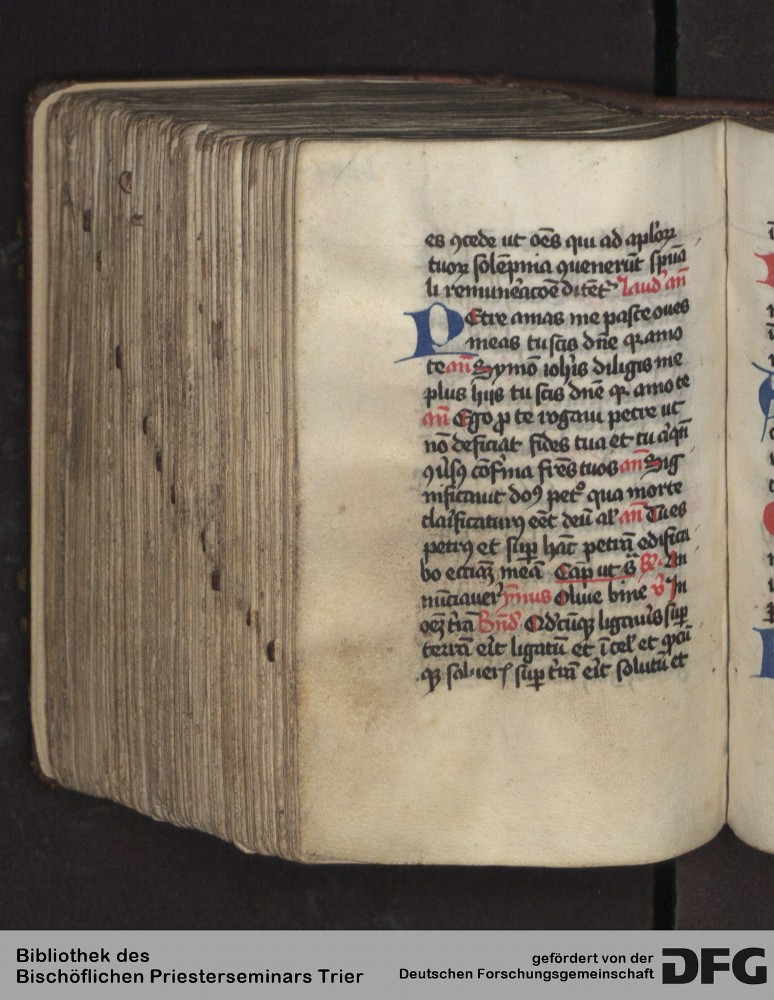 es ꝯcede ut oēs qui ad aplo℞
tuoꝝ solēpnia ꝯuenerūt spūa
li remunerac̄oē ditēt᷑ laud' an̄
PEtre amas me pasce oues
meas tu scis dn̄e q̄ amo
te an̄ Symō ioh̄is diligis me
plus hijs tu scis dn̄e q̄ amo te
an̄ Ego ꝓ te rogaui petre ut
nō deficiat fides tua et tu
ꝯ̄sꝰ cōf̄ma fr̄es tuos an̄ Sig
nificauit pet̊ qua morte
clarificaturꝰ eēt deū al' an̄ Tu es
petrꝰ et suꝑ hāc petrā edifica
bo ecc̄iaꝫ meā Cap̄ ut ꝶ In
ymnus Oliue bine ℣ In
oēꝫ t̄rā Bn̄d' Qdcūqꝫ ligau̓is suꝑ
terrā erit ligatū et ī cel' et
suꝑ t̄rā erit solutū et
Bibliothek des
Bischöflichen Priesterseminars Trier
gefördert von der
Deutschen Forschungsgemeinschaft
DFG